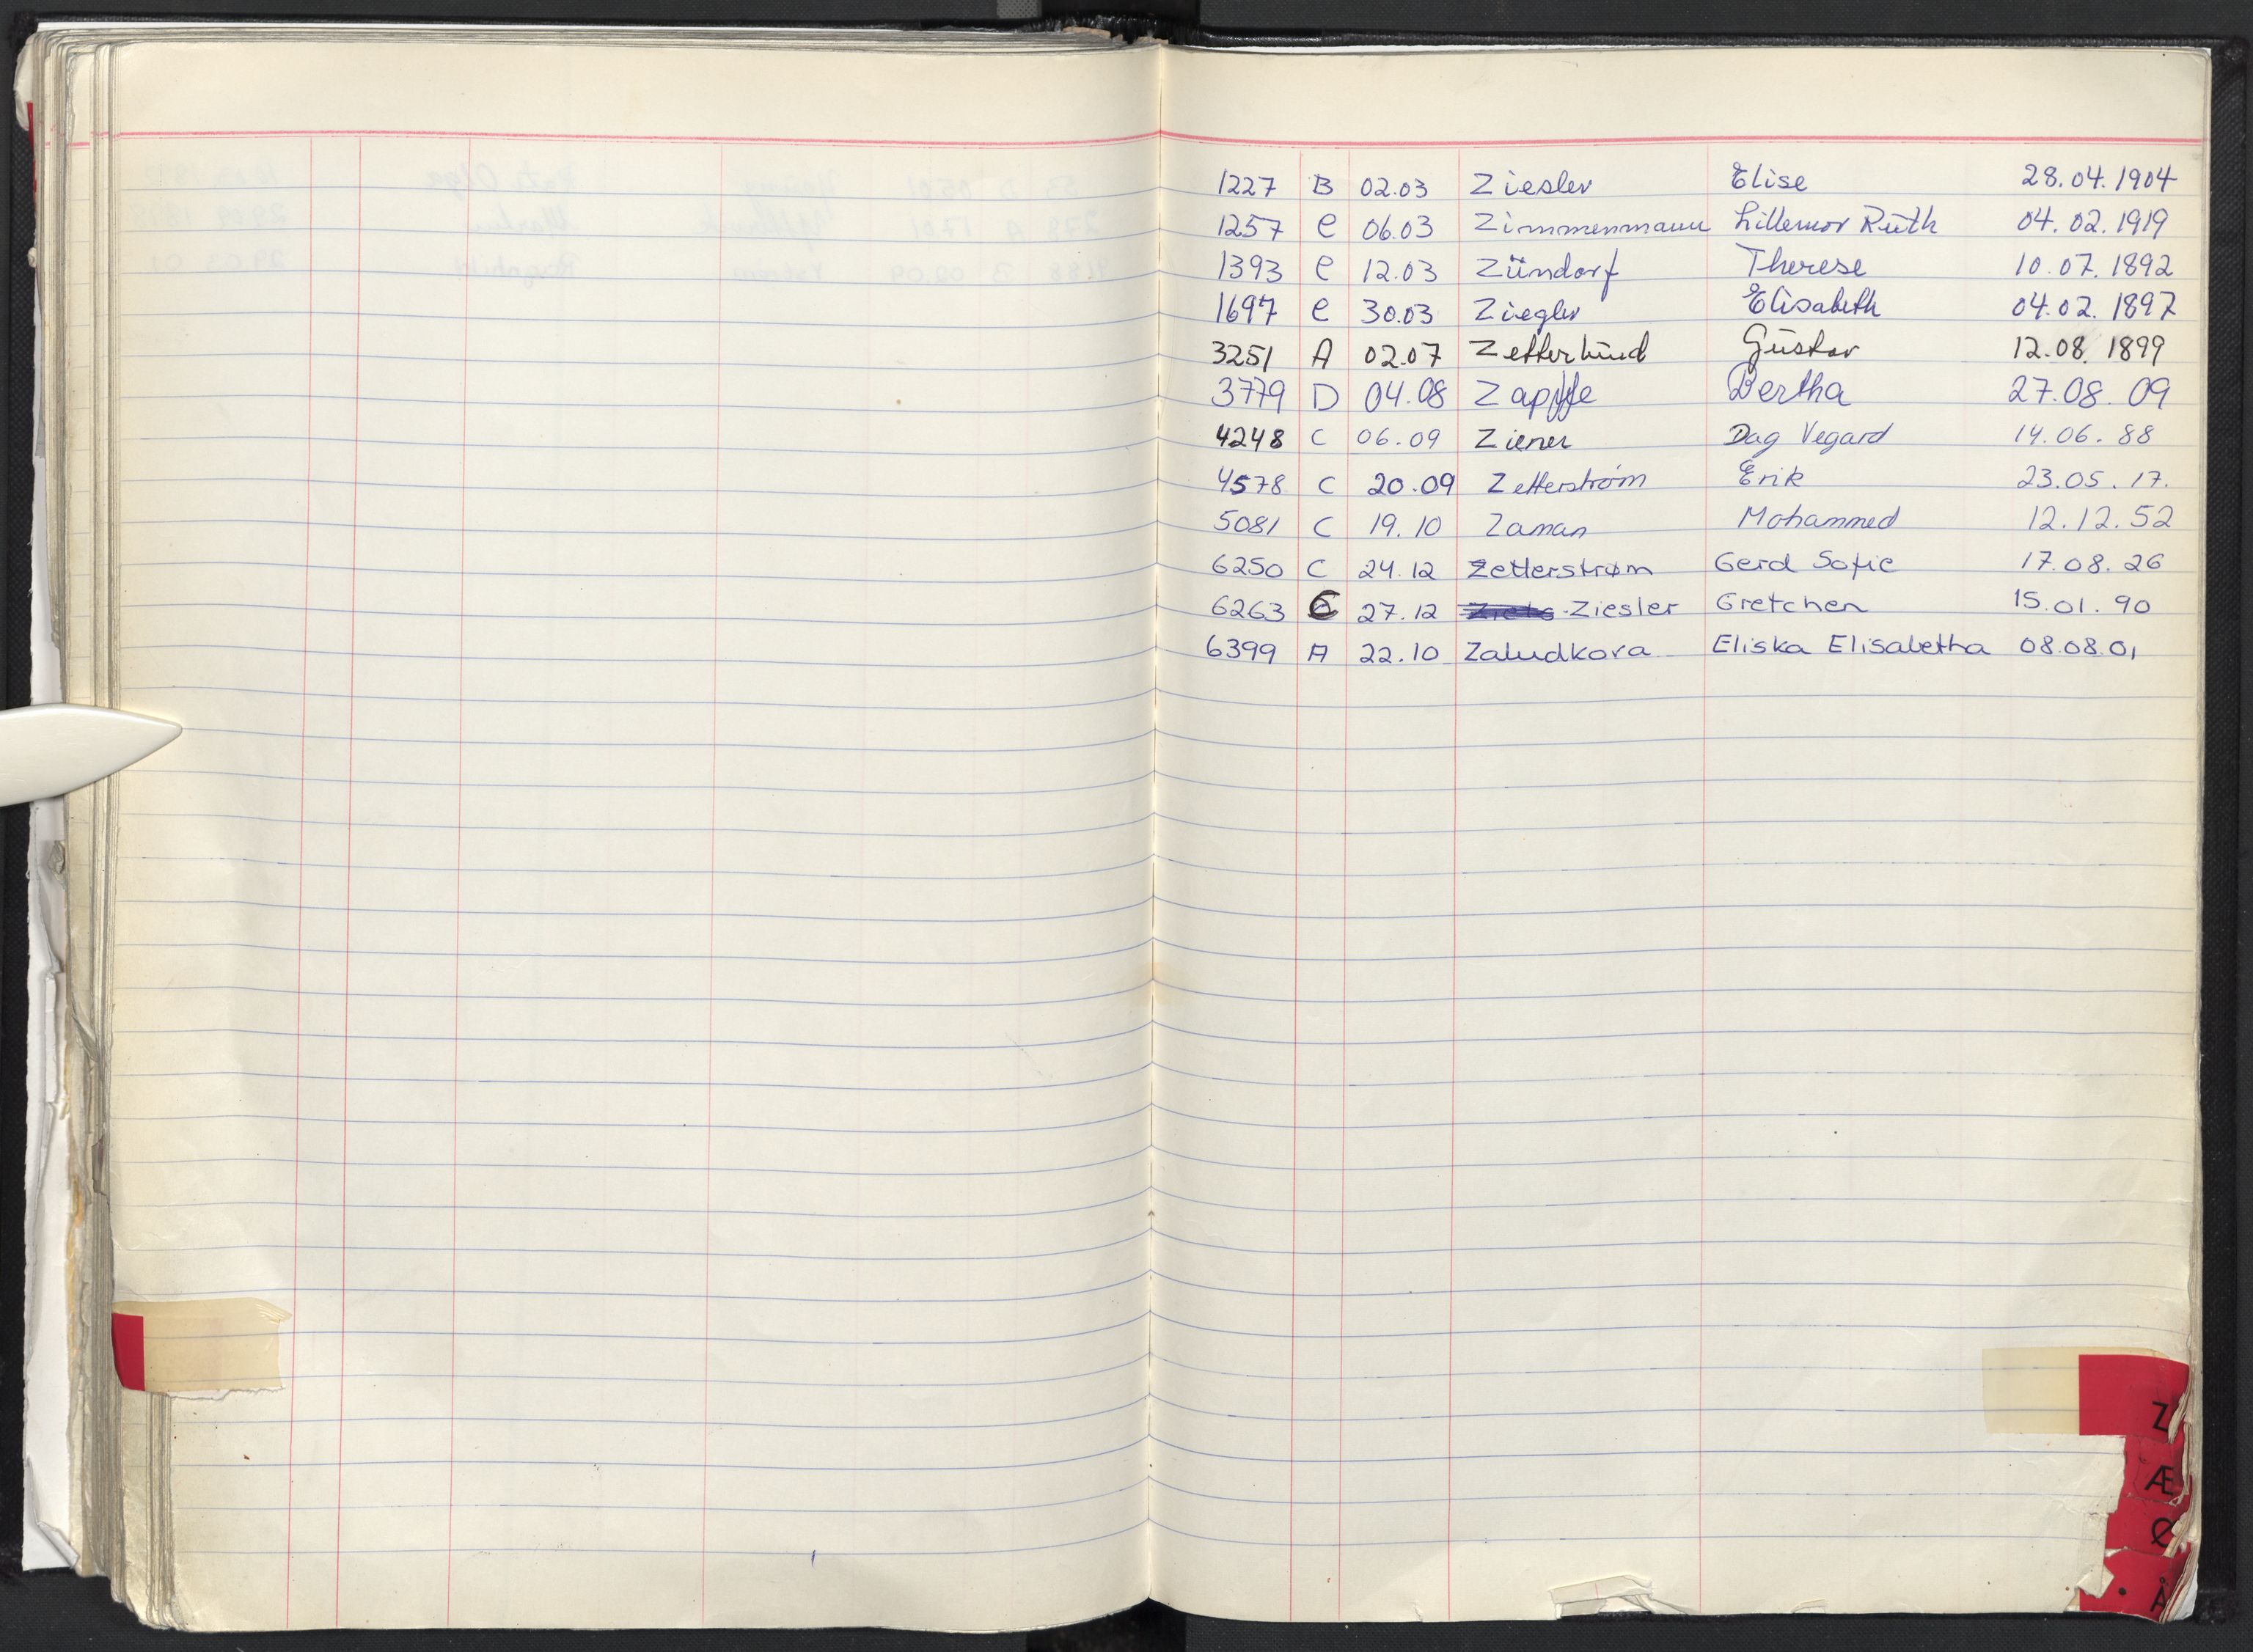 1227 B 02.03 Ziesler Elise 28.04.1904
1257 C 06.03 Zimmenmann Lillemor Ruth 04.02.1919
1393 C 12.03 Zündorf Therese 10.07.1892
1697 C 30.03 Ziegler Elisabeth 04.02.1897
3251 A 02.07 Zetterlund Gustav 12.08.1899
3779 D 04.08 Zapffe Bertha 27.08.09
4248 C 06.09 Ziener Dag Vegard 14.06.88
4578 C 20.09 Zetterstrøm Erik 23.05.17.
5081 C 19.10 Zaman Mohammed 12.12.52
6250 C 24.12 Zetterstrøm Gerd Sofie 17.08.26
6263 C 27.12 Ziesler Gretchen 15.01.90
6399 A 22.10 Zaludkova Eliska Elisabetha 08.08.01
Z
Æ
Ø
Å